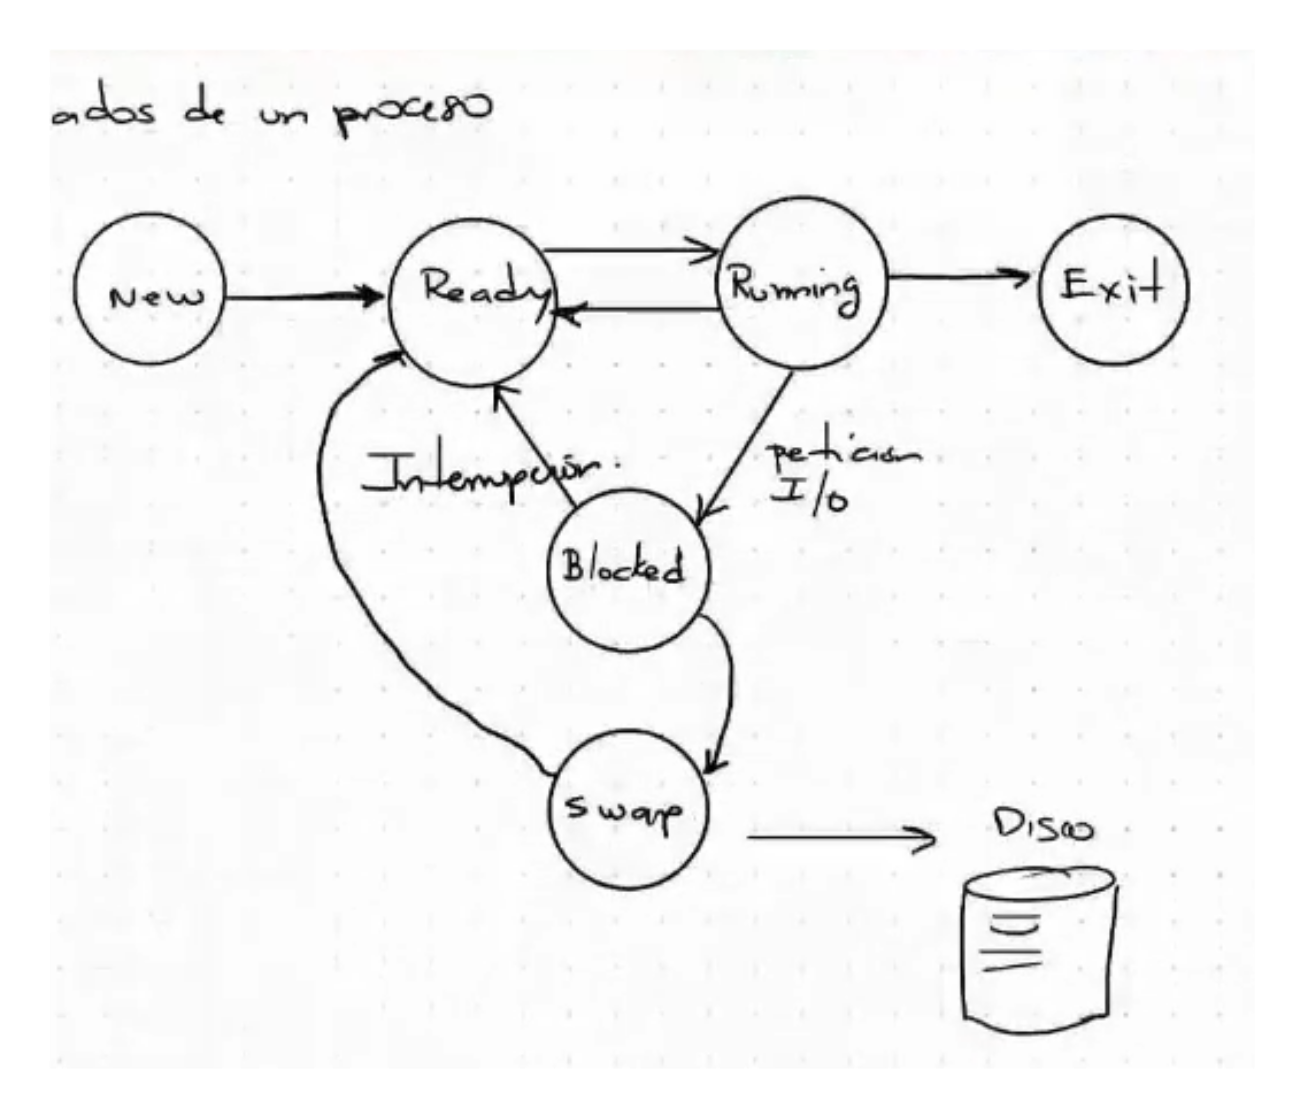 ados de un proceso
New
Ready
Running
Exit
Interrupción.
petición
I/O
Blocked
Swap
Disco